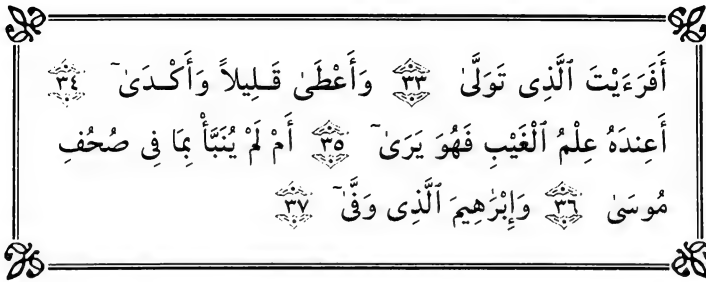 أَفَرَءَيْتَ ٱلَّذِى تَوَلَّىٰ ٣٣ وَأَعْطَىٰ قَـلِيلاً وَأَكْـدَىٰٓ ٣٤
أَعِندَهُ عِلْمُ ٱلْغَيْبِ فَهُوَ يَرَىٰٓ ٣٥ أَمْ لَمْ يُنَبَّأْ بِمَا فِى صُحُفِ
مُوسَىٰ ٣٦ وَإِبْرَٰهِيمَ ٱلَّذِى وَفَّىٰٓ ٣٧